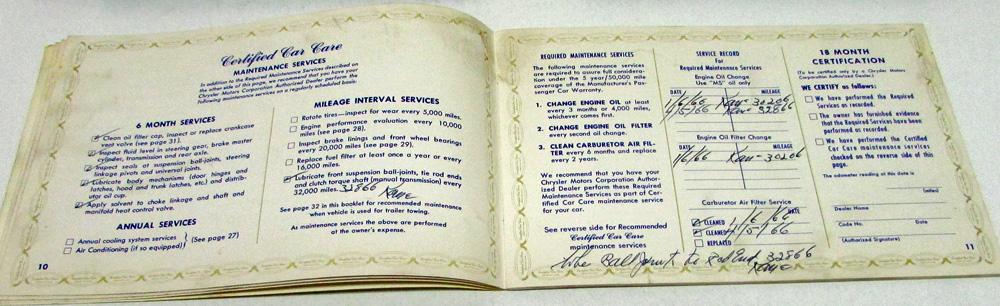 Certified Car Care
MAINTENANCE SERVICES
In addition to the Required Maintenance Services described on
the other side of this page, we recommend that you have your
Chrysler Motors Corporation Authorized Dealer perform the
following maintenance services on a regularly scheduled basis:
6 MONTH SERVICES
Clean oil filler cap, inspect or replace crankcase
vent valve (see page 31).
Inspect fluid level in steering gear, brake master
cylinder, transmission and rear axle.
Inspect seals at suspension ball-joints, steering
linkage pivots and universal joints.
Lubricate body mechanisms (door hinges and
latches, hood and trunk latches, etc.) and distrib-
utor oil cup.
Apply solvent to choke linkage and shaft and
manifold heat control valve.
ANNUAL SERVICES
Annual cooling system services
Air Conditioning (if so equipped)
(See page 27)
10
MILEAGE INTERVAL SERVICES
Rotate tires—inspect for wear every 5,000 miles.
Engine performance evaluation every 10,000
miles (see page 28).
Inspect brake linings and front wheel bearings
every 20,000 miles (see page 29).
Replace fuel filter at least once a year or every
16,000 miles.
Lubricate front suspension ball-joints, tie rod ends
and clutch torque shaft (manual transmission) every
32,000 miles. 32866
See page 32 in this booklet for recommended maintenance
when vehicle is used for trailer towing.
As maintenance services the above are performed
at the owner's expense.
REQUIRED MAINTENANCE SERVICES
The following maintenance services
are required to assure full considera-
tion under the 5 year/50,000 mile
coverage of the Manufacturer's Pas-
senger Car Warranty.
1. CHANGE ENGINE OIL at least
every 3 months or 4,000 miles,
whichever comes first.
2. CHANGE ENGINE OIL FILTER
every second oil change.
3. CLEAN CARBURETOR AIR FIL-
TER every 6 months and replace
every 2 years.
We recommend that you have your
Chrysler Motors Corporation Author-
ized Dealer perform these Required
Maintenance Services as part of Cer-
tified Car Care maintenance service
for your car.
See reverse side for Recommended
Certified Car Care
maintenance services
SERVICE RECORD
For
Required Maintenance Services
Engine Oil Change
Use "MS" oil only
DATE MILEAGE
1/6/66 30206
4/5/66 32866
Engine Oil Filter Change
DATE MILEAGE
1/6/66 30206
Carburetor Air Filter Service
DATE
CLEANED 1/6/66
CLEANED 4/5/66
REPLACED
Lube Ball Joints 32866
18 MONTH
CERTIFICATION
(To be certified only by a Chrysler Motors
Corporation Authorized Dealer.)
WE CERTIFY as follows:
We have performed the Required
Services as recorded.
The owner has furnished evidence
that the Required Services have been
performed as recorded.
We have performed the Certified
Car Care maintenance services
checked on the reverse side of this
page.
The odometer reading at this date is
(miles)
Dealer Name
Code No. Date
(Authorized Signature)
11